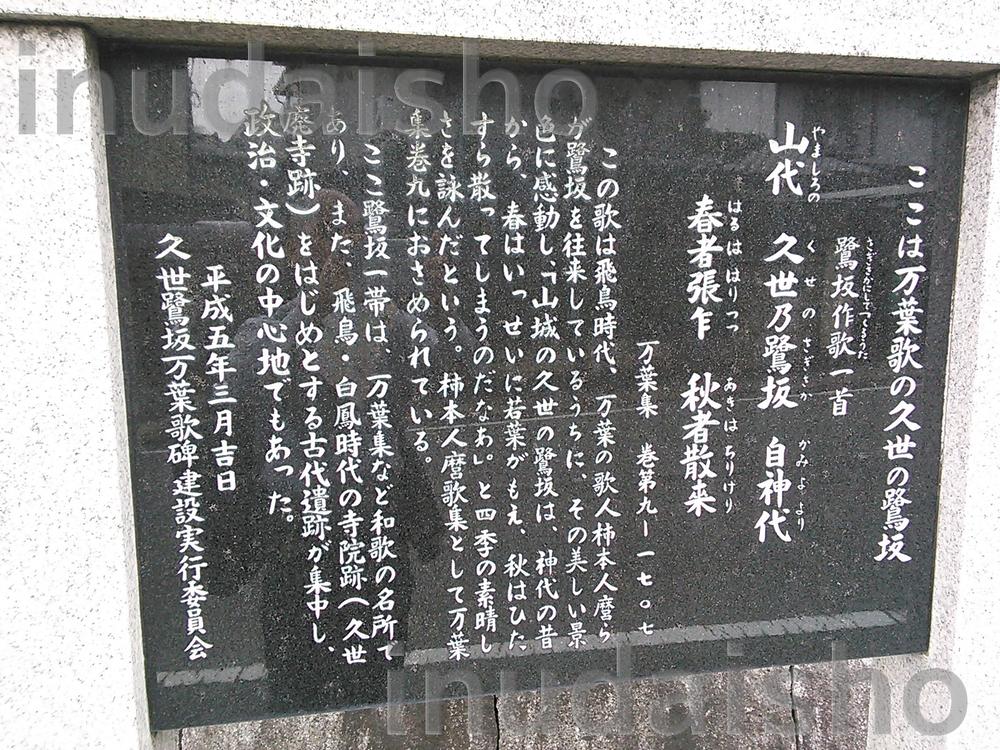 inudaisho
ここは万葉歌の久世の鷺坂
さぎさかにしてつくるうた
鷺坂作歌一首
やましろの くせのさぎさか かみよより
山代 久世乃鷺坂 自神代
はるははりつつ あきはちりけり
春者張乍 秋者散来
万葉集 巻第九ー一七〇七
この歌は飛鳥時代、万葉の歌人柿本人麿ら
が鷺坂を往来しているうちに、その美しい景
色に感動し、「山城の久世の鷺坂は、神代の昔
から、春はいっせいに若葉がもえ、秋はひた
すら散ってしまうのだなあ。」と四季の素晴し
さを詠んだという。柿本人麿歌集として万葉
集巻九におさめられている。
ここ鷺坂一帯は、万葉集など和歌の名所で
あり、また、飛鳥・白鳳時代の寺院跡(久世
廃寺跡)をはじめとする古代遺跡が集中し、
政治・文化の中心地でもあった。
平成五年三月吉日
久世鷺坂万葉歌碑建設実行委員会
inudaisho